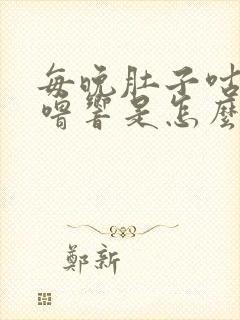 每晚肚子咕
嚕響是怎麼
鄭新